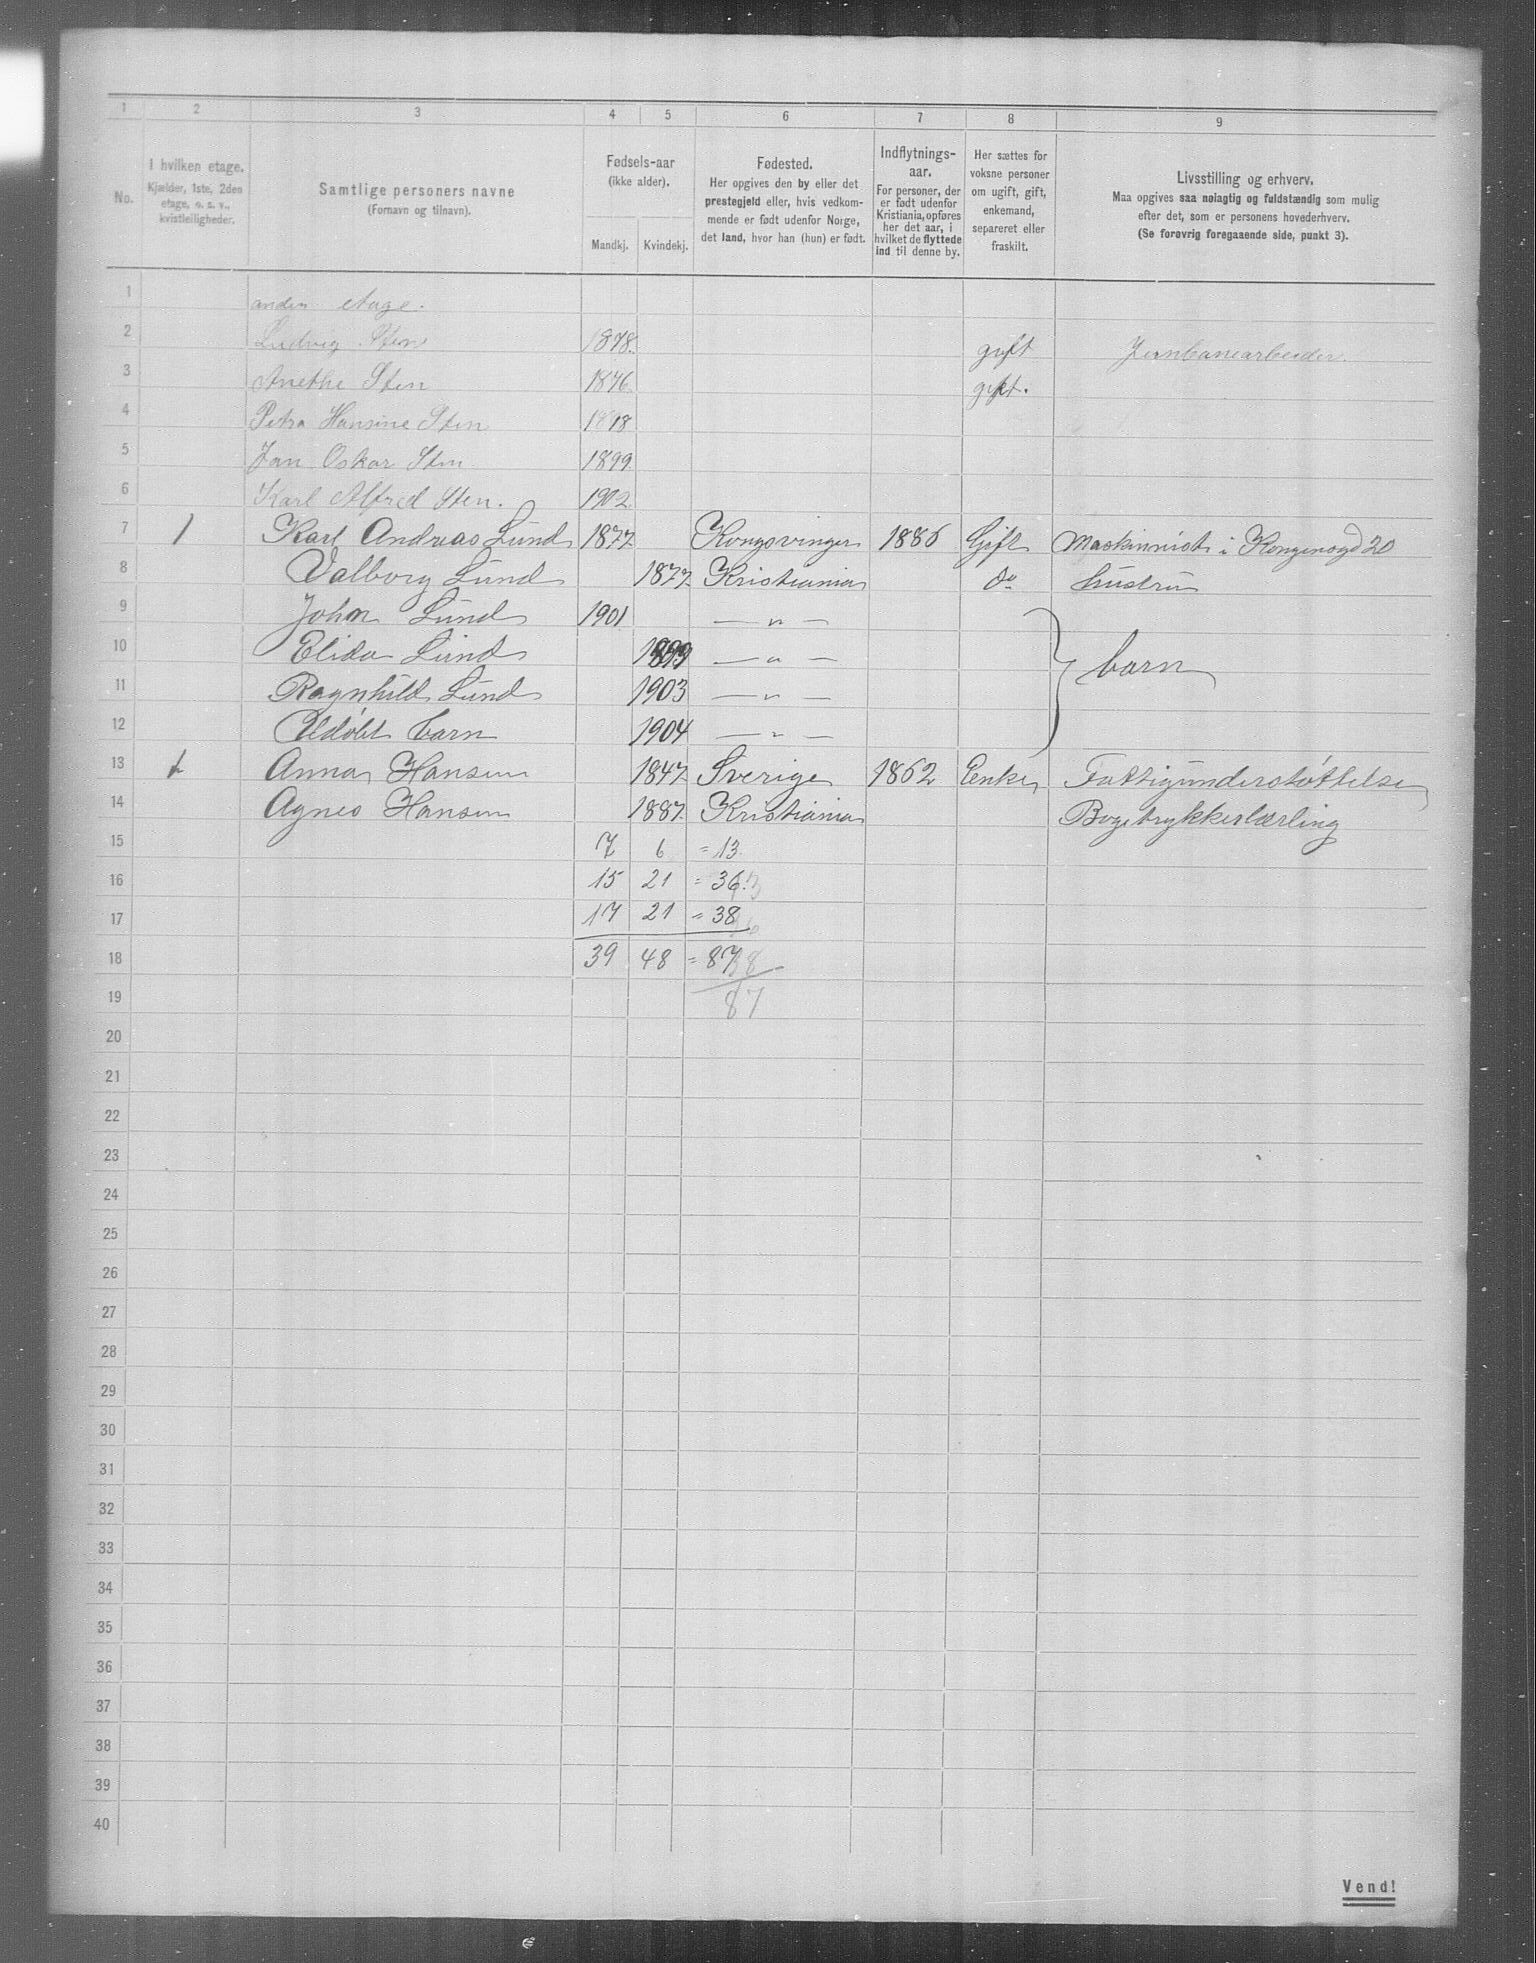 1 2 3 4 5 6 7 8 9
No.
I hvilken etage.
Kjælder, 1ste, 2den
etage, o. s. v.,
kvistleiligheder.
Samtlige personers navne
(Fornavn og tilnavn).
Fødsels-aar
(ikke alder).
Mandkj. Kvindekj.
Fødested.
Her opgives den by eller det
prestegjeld eller, hvis vedkom-
mende er født udenfor Norge,
det land, hvor han (hun) er født.
Indflytnings-
aar.
For personer, der
er født udenfor
Kristiania, opføres
her det aar, i
hvilket de flyttede
ind til denne by.
Her sættes for
voksne personer
om ugift, gift,
enkemand,
separeret eller
fraskilt.
Livsstilling og erhverv.
Maa opgives saa nøiagtig og fuldstændig som mulig
efter det, som er personens hovederhverv.
(Se forøvrig foregaaende side, punkt 3).
1 anden etage.
2 Ludvig Sten 1878. gift Jernbanearbeider.
3 Anethe Sten 1876. gift.
4 Petra Hansine Sten 1898
5 Jan Oskar Sten 1899.
6 Karl Alfred Sten. 1902.
7 1 Karl Andreas Lund 1877. Kongsvinger 1886 Gift Maskinnist i Kongensgd 20
8 Valborg Lund 1877. Kristiania do Hustru
9 John Lund 1901 — " —
10 Elida Lund 1899 — " — } barn
11 Ragnhild Lund 1903 — " —
12 Udøbt barn 1904 — " —
13 1 Anna Hansen 1847. Sverige 1862 Enke Fattigunderstøttelse
14 Agnes Hansen 1887. Kristiania Bogtrykkerlærling
15 7 6 = 13.
16 15 21 = 36.
17 17 21 = 38
18 39 48 = 87
19 87
20
21
22
23
24
25
26
27
28
29
30
31
32
33
34
35
36
37
38
39
40
Vend!